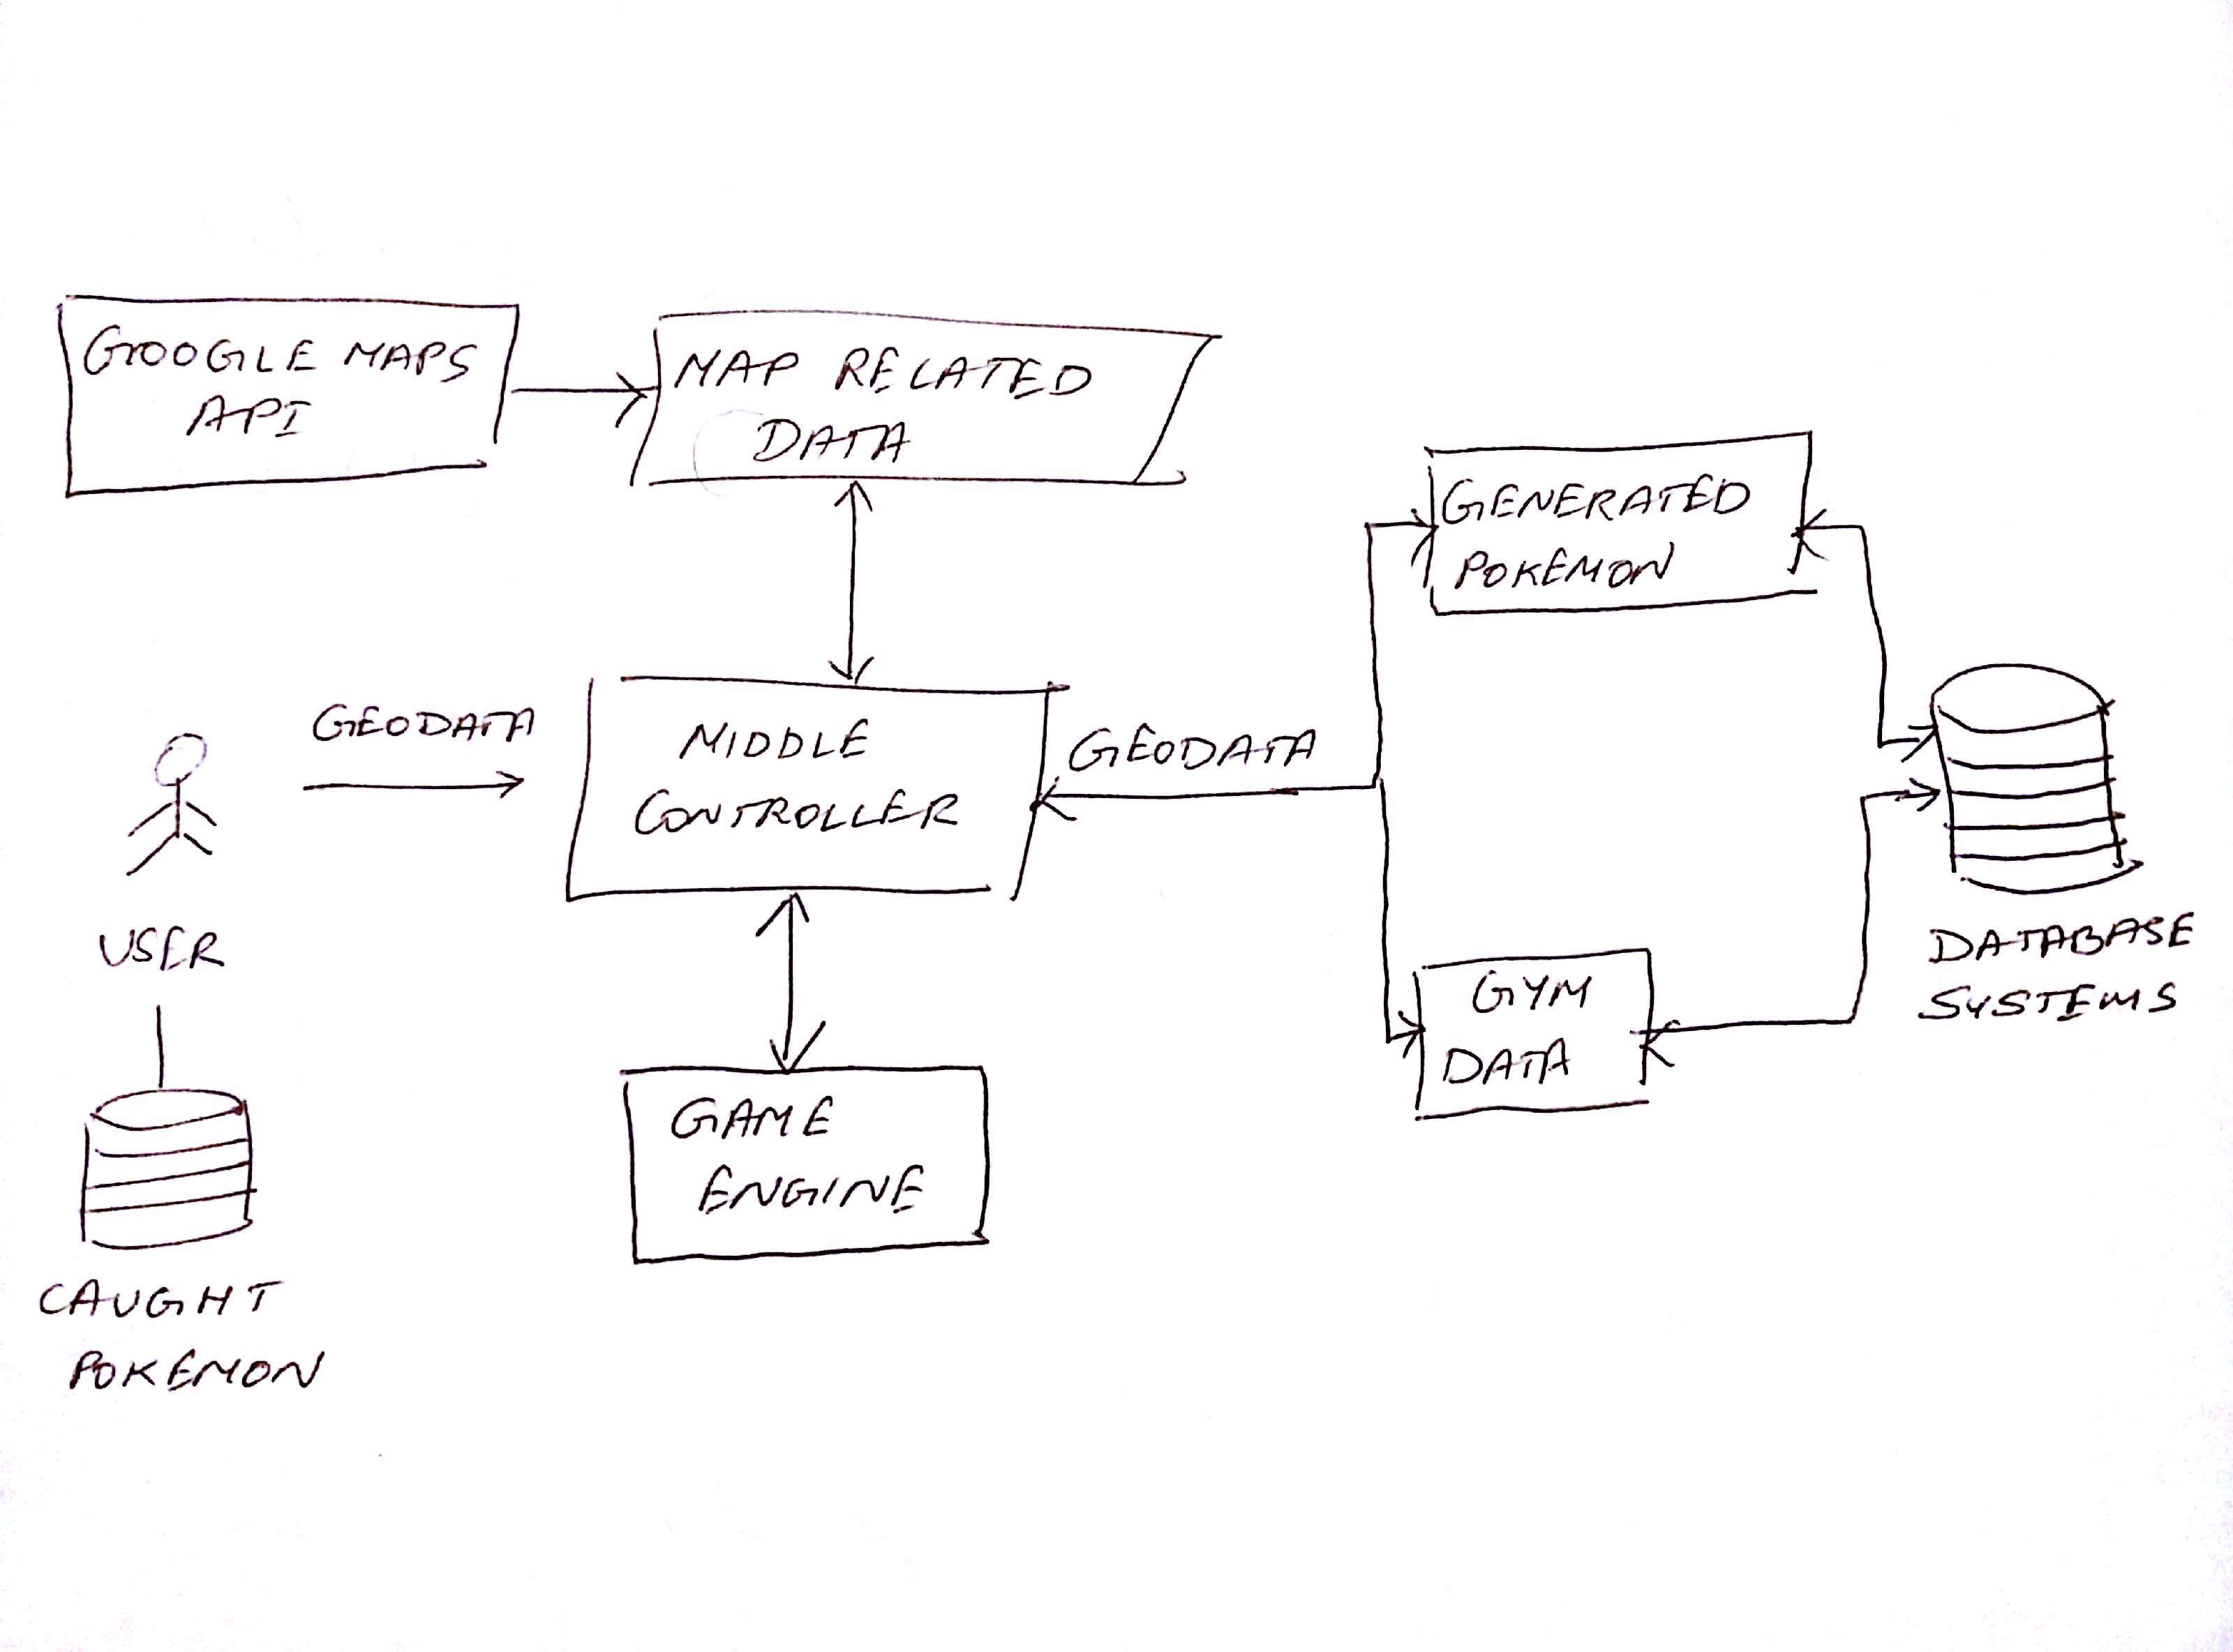 GOOGLE MAPS
API
MAP RELATED
DATA
GENERATED
POKEMON
GEODATA
MIDDLE
CONTROLLER
GEODATA
USER
DATABASE
SYSTEMS
GYM
DATA
GAME
ENGINE
CAUGHT
POKEMON